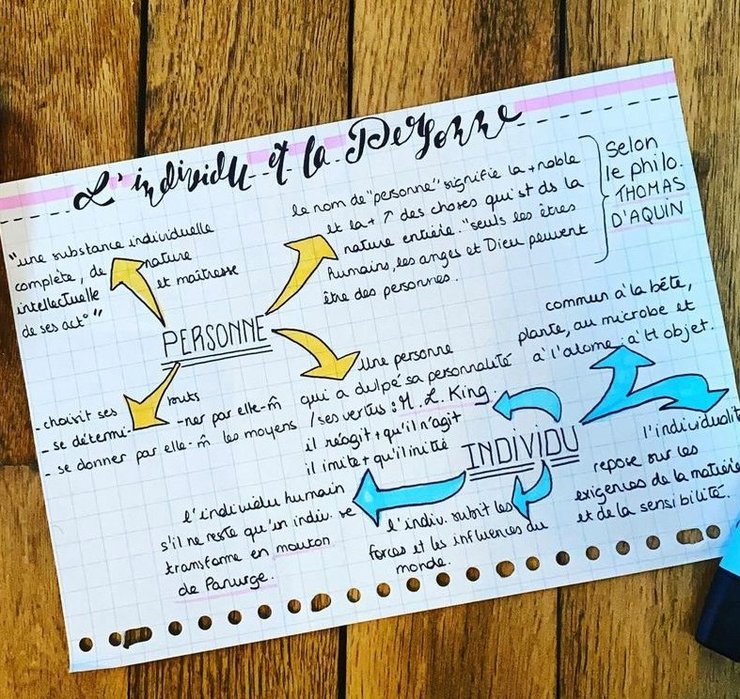 L'individu et la Personne
"une substance individuelle
complète, de nature
intellectuelle et maîtresse
de ses act°"
le nom de "personne" signifie la + noble
et la + ↗ des choses qui st ds la
nature entière. "seuls les êtres
humains, les anges et Dieu peuvent
être des personnes.
Selon
le philo.
THOMAS
D'AQUIN
PERSONNE
- choisit ses buts
- se détermi- -ner par elle-m̂
- se donner par elle-m̂ les moyens
Une personne
qui a dvlpé sa personnalité
/ses vertus : M. L. King.
INDIVIDU
il réagit + qu'il n'agit
il imite + qu'il initie
commun à la bête,
plante, au microbe et
à l'atome, à tt objet.
l'individualit
repose sur les
exigences de la matière
et de la sensibilité.
l'indiv. subit les
forces et les influences du
monde.
l'individu humain
s'il ne reste qu'un indiv. se
transforme en mouton
de Panurge.